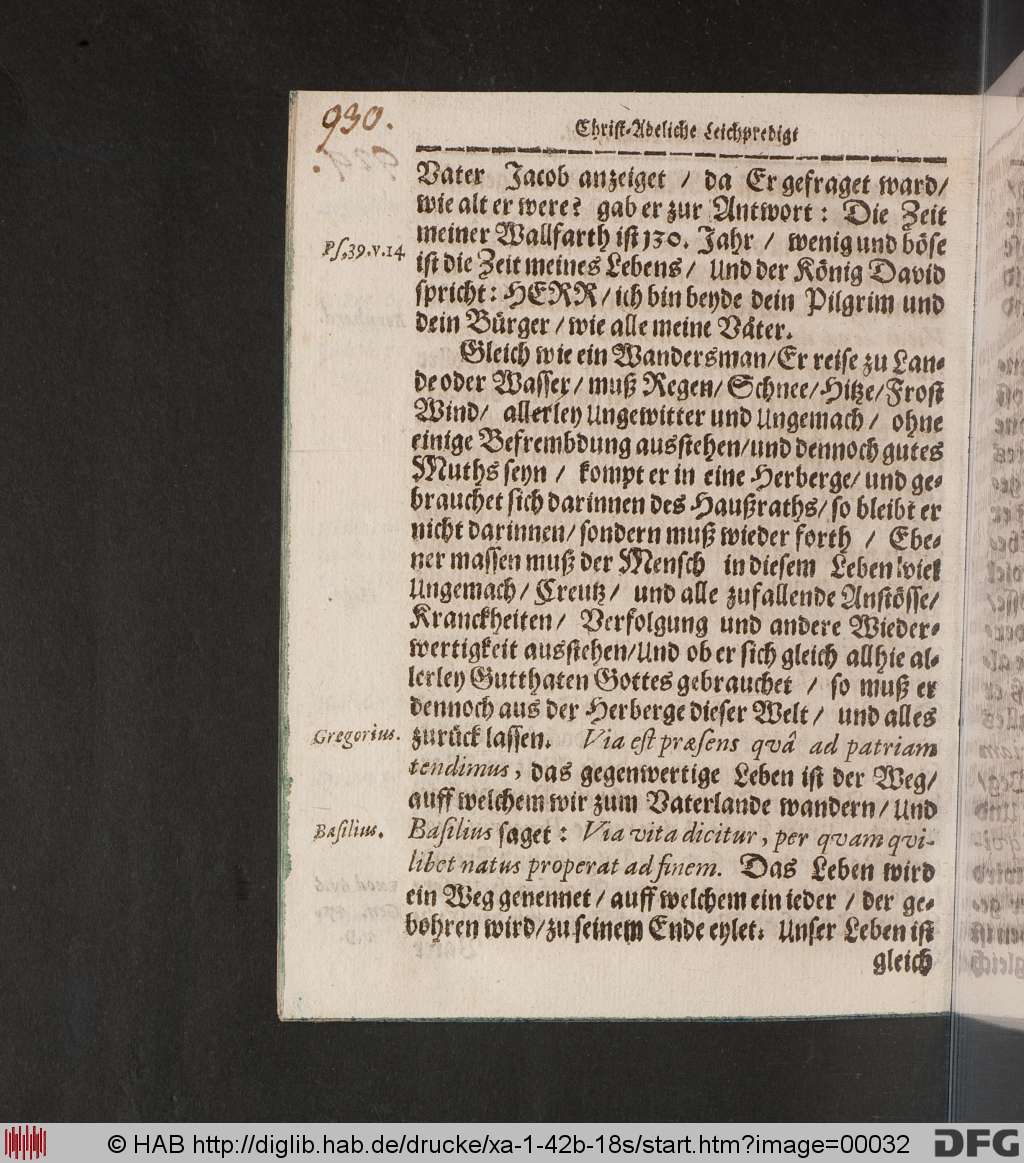 930.
Christ-Adeliche Leichpredigt
Vater Jacob anzeiget / da Er gefraget ward/
wie alt er were? gab er zur Antwort: Die Zeit
meiner Wallfarth ist 130. Jahr / wenig und böse
Ps. 39. v. 14
ist die Zeit meines Lebens/ Und der König David
spricht: HERR/ ich bin beyde dein Pilgrim und
dein Bürger/ wie alle meine Väter.
Gleich wie ein Wandersman/ Er reise zu Lan-
de oder Wasser/ muß Regen/ Schnee/ Hitze/ Frost
Wind/ allerley Ungewitter und Ungemach/ ohne
einige Befrembdung ausstehen/ und dennoch gutes
Muths seyn / kompt er in eine Herberge/ und ge-
brauchet sich darinnen des Haußraths/ so bleibt er
nicht darinnen/ sondern muß wieder forth / Ebe-
ner massen muß der Mensch in diesem Leben viel
Ungemach/ Creutz/ und alle zufallende Anstösse/
Kranckheiten/ Verfolgung und andere Wieder-
wertigkeit ausstehen/ Und ob er sich gleich allhie al-
lerley Gutthaten Gottes gebrauchet / so muß er
dennoch aus der Herberge dieser Welt/ und alles
Gregorius.
zurück lassen. Via est præsens qvâ ad patriam
tendimus, das gegenwertige Leben ist der Weg/
auff welchem wir zum Vaterlande wandern/ Und
Basilius.
Basilius saget: Via vita dicitur, per qvam qvi-
libet natus properat ad finem. Das Leben wird
ein Weg genennet/ auff welchem ein ieder / der ge-
bohren wird/ zu seinem Ende eylet. Unser Leben ist
gleich
© HAB http://diglib.hab.de/drucke/xa-1-42b-18s/start.htm?image=00032
DFG